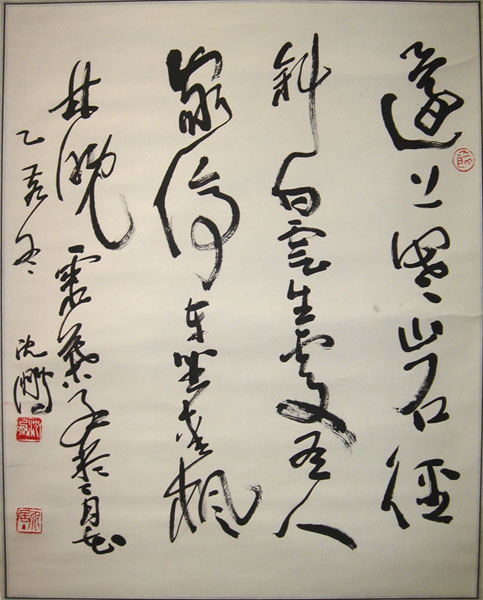 遠上寒山石徑
斜白雲生處有人
家停車坐愛楓
林晚霜葉紅於二月花
乙亥冬 沈鵬